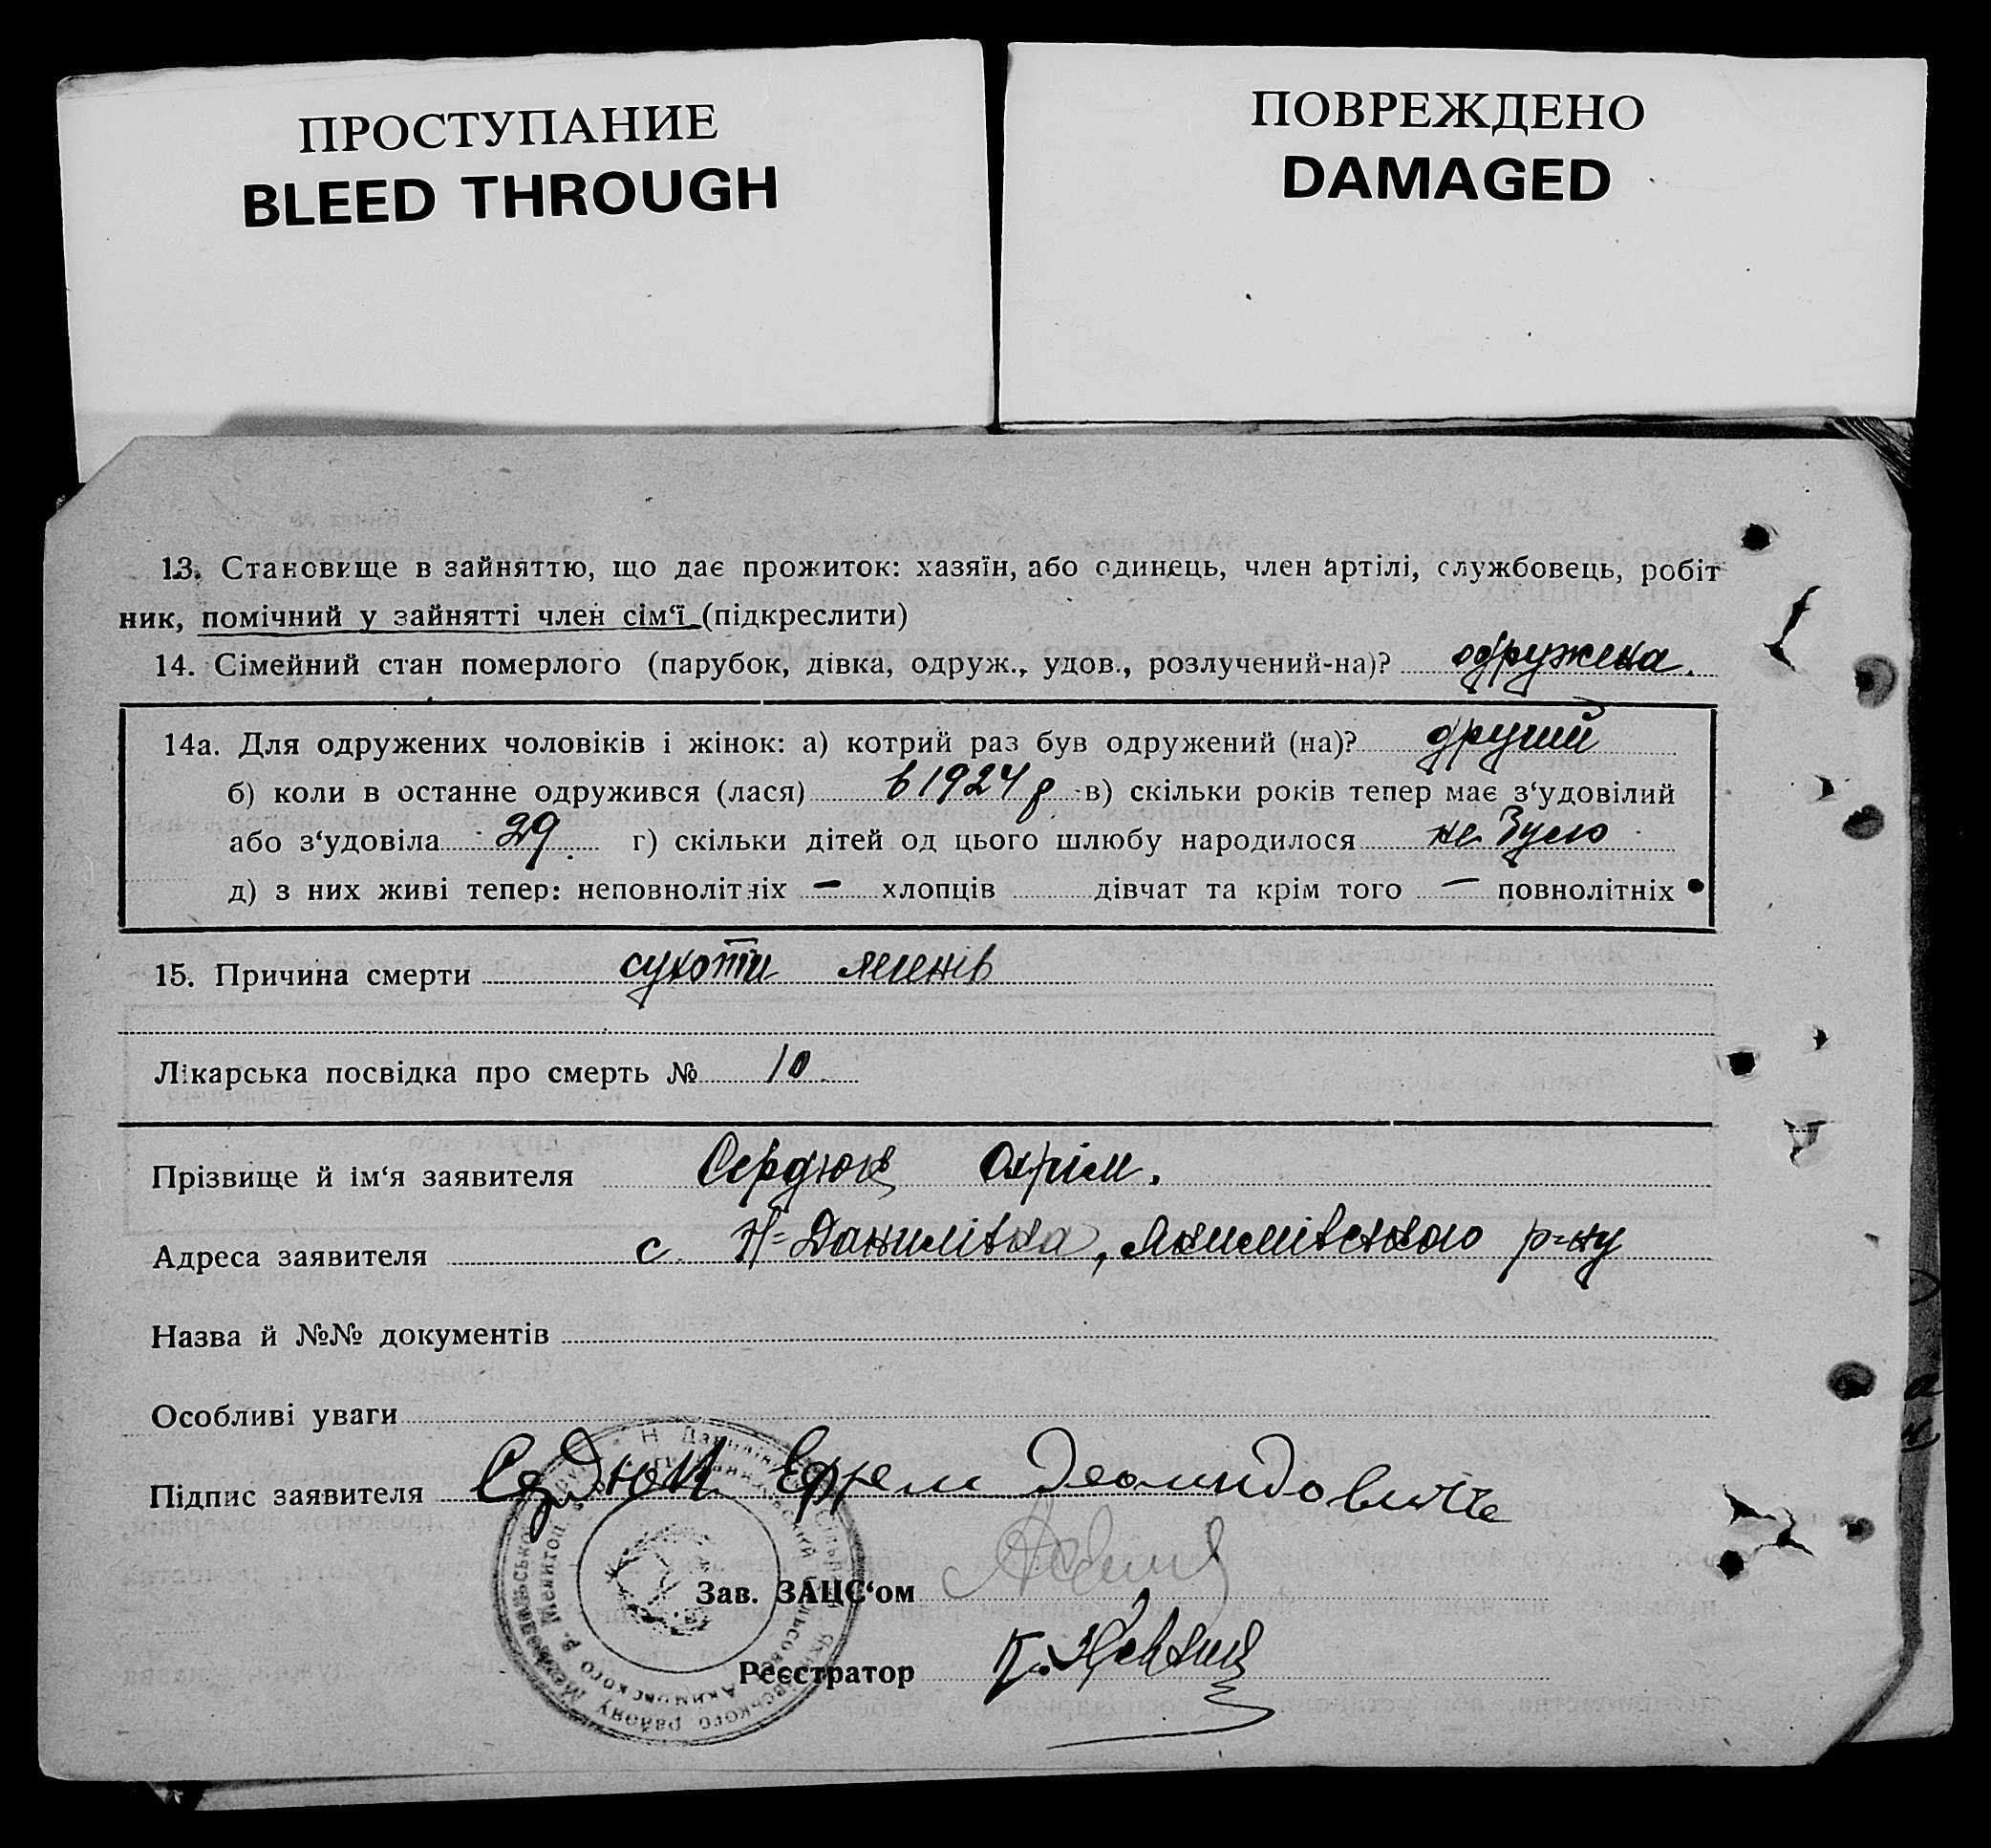 ПРОСТУПАНИЕ
BLEED THROUGH
ПОВРЕЖДЕНО
DAMAGED
13. Становище в зайняттю, що дає прожиток: хазяїн, або одинець, член артілі, службовець, робіт
ник, помічний у зайнятті член сім‘ї (підкреслити)
14. Сімейний стан померлого (парубок, дівка, одруж., удов., розлучений-на)? одружена.
14а. Для одружених чоловіків і жінок: а) котрий раз був одружений (на)? другий
б) коли в останне одружився (лася) в 1924 р в) скільки років тепер має з‘удовілий
або з‘удовіла 29. г) скільки дітей од цього шлюбу народилося не було
д) з них живі тепер: неповнолітніх — хлопців дівчат та крім того — повнолітніх
15. Причина смерти сухоти легенів
Лікарська посвідка про смерть № 10
Прізвище й ім‘я заявителя Сердюк Охрім.
Адреса заявителя с. Н=Данилівка, Якимівського р=ну
Назва й №№ документів
Особливі уваги
Підпис заявителя Сердюк Ефрем
Зав. ЗАЦС‘ом
Реєстратор